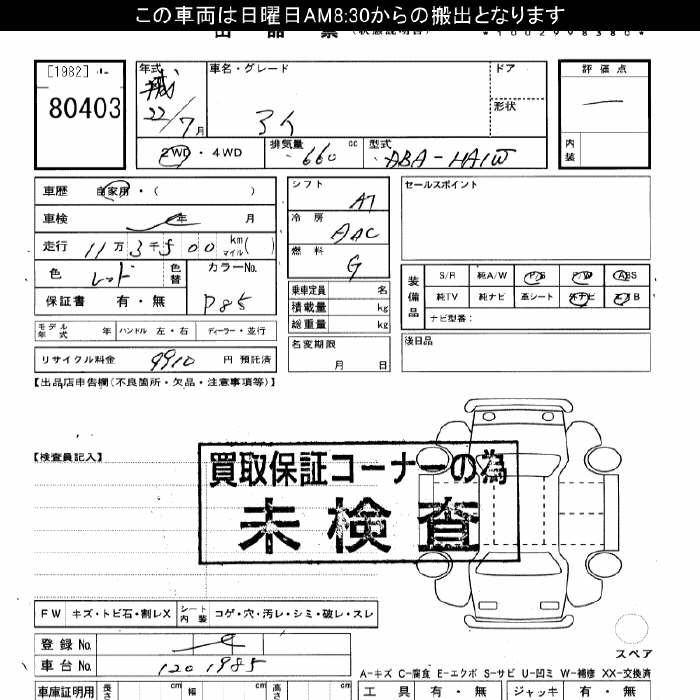 この車両は日曜日AM8:30からの搬出となります
出品票 (状態説明書)
*1002998380*
[1982]
80403
年式
平成
22/7月
車名・グレード
アイ
ドア
形状
評価点
—
内装
2WD・4WD
排気量 660 cc
型式 ABA-HA1W
車歴 自家用・( )
車検 年 月
走行 11万3千500 km マイル( )
色 レッド
色替
カラーNo.
P85
保証書 有・無
モデル年式 年 ハンドル 左・右 ディーラー・並行
リサイクル料金 9910 円 預託済
シフト AT
冷房 AAC
燃料 G
乗車定員 名
積載量 kg
総重量 kg
名変期限
月 日
セールスポイント
装備品
S/R 純A/W P/S P/W ABS
純TV 純ナビ 革シート 外ナビ エアB
ナビ型番:
後日品
【出品店申告欄(不良箇所・欠品・注意事項等)】
【検査員記入】
買取保証コーナーの為
未検査
FW キズ・トビ石・割レX シート内装 コゲ・穴・汚レ・シミ・破レ・スレ
登録 No.
車台 No. 1201985
スペア
A-キズ C-腐食 E-エクボ S-サビ U-凹ミ W-補修 XX-交換済
車庫証明用 長さ cm 幅 cm 高さ cm
工具 有・無 ジャッキ 有・無